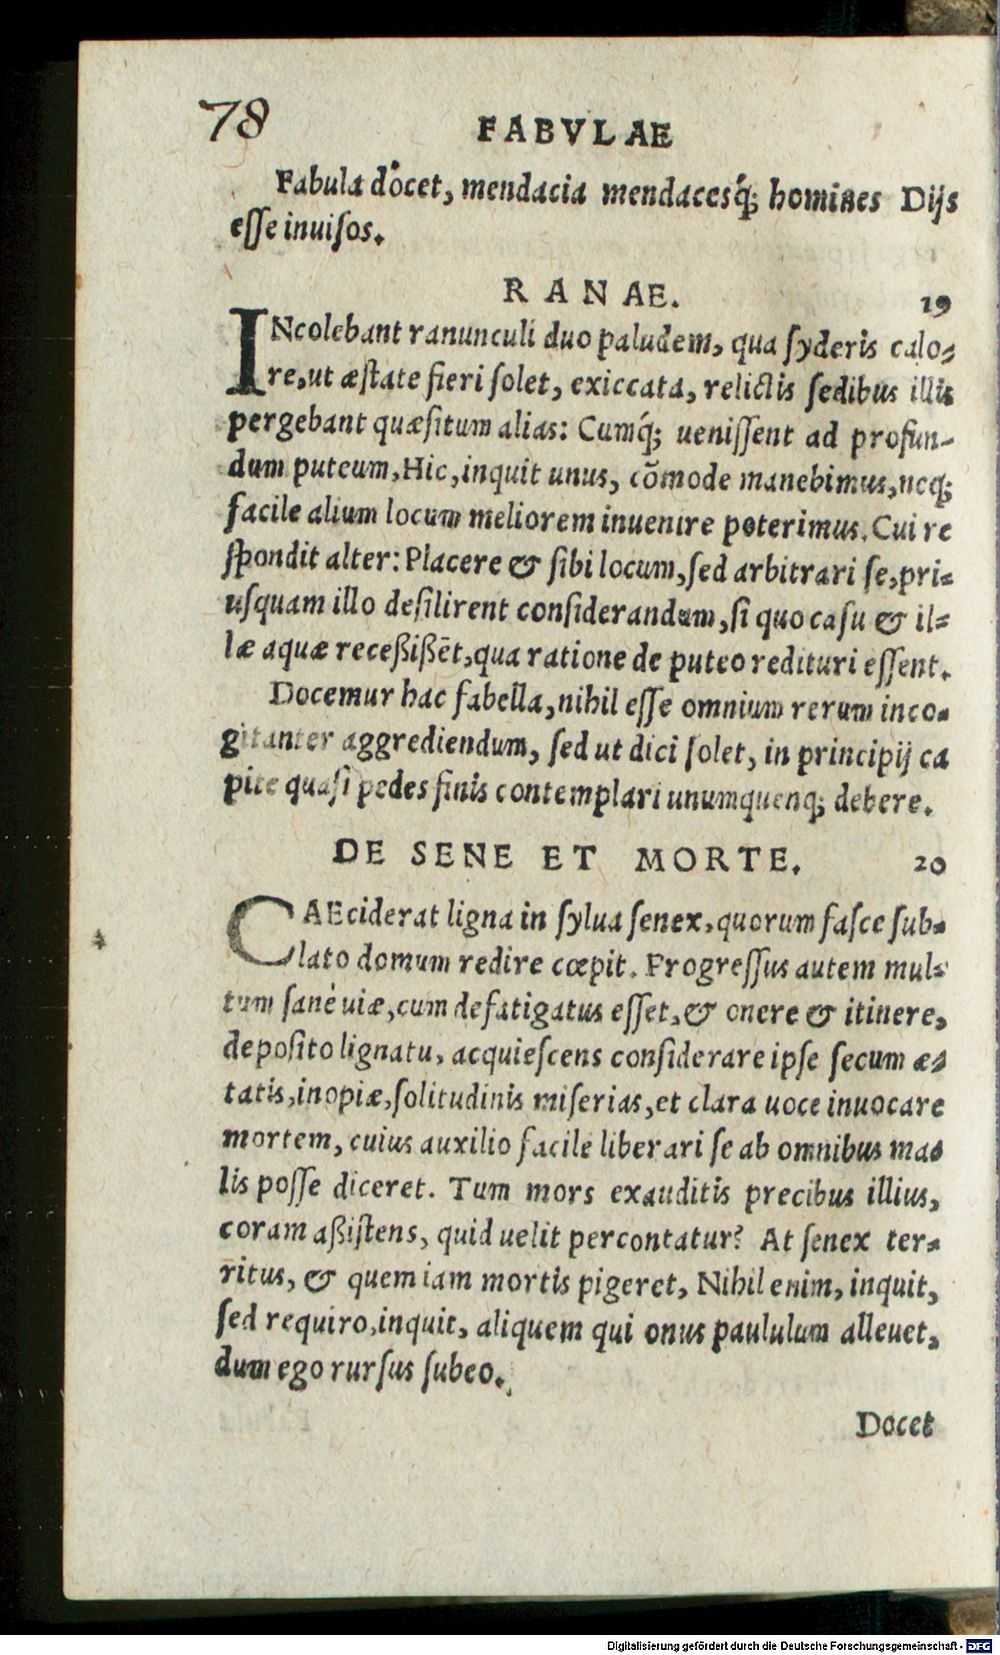 78
FABVLAE
Fabula docet, mendacia mendacesq́; homines Dijs
esse inuisos.
RANAE. 19
INcolebant ranunculi duo paludem, qua syderis calo-
re, ut æstate fieri solet, exiccata, relictis sedibus illis
pergebant quæsitum alias: Cumq́; uenissent ad profun-
dum puteum, Hic, inquit unus, cõmode manebimus, neq;
facile alium locum meliorem inuenire poterimus. Cui re
spondit alter: Placere & sibi locum, sed arbitrari se, pri-
usquam illo desilirent considerandum, si quo casu & il-
læ aquæ receßißẽt, qua ratione de puteo redituri essent.
Docemur hac fabella, nihil esse omnium rerum inco-
gitanter aggrediendum, sed ut dici solet, in principij ca
pite quasi pedes finis contemplari unumquenq; debere.
DE SENE ET MORTE. 20
CAEciderat ligna in sylua senex, quorum fasce sub-
lato domum redire cœpit. Progressus autem mul-
tum sanè uiæ, cum defatigatus esset, & onere & itinere,
deposito lignatu, acquiescens considerare ipse secum æ-
tatis, inopiæ, solitudinis miserias, et clara uoce inuocare
mortem, cuius auxilio facile liberari se ab omnibus ma-
lis posse diceret. Tum mors exauditis precibus illius,
coram aßistens, quid uelit percontatur? At senex ter-
ritus, & quem iam mortis pigeret, Nihil enim, inquit,
sed requiro, inquit, aliquem qui onus paululum alleuet,
dum ego rursus subeo.
Docet
Digitalisierung gefördert durch die Deutsche Forschungsgemeinschaft - DFG